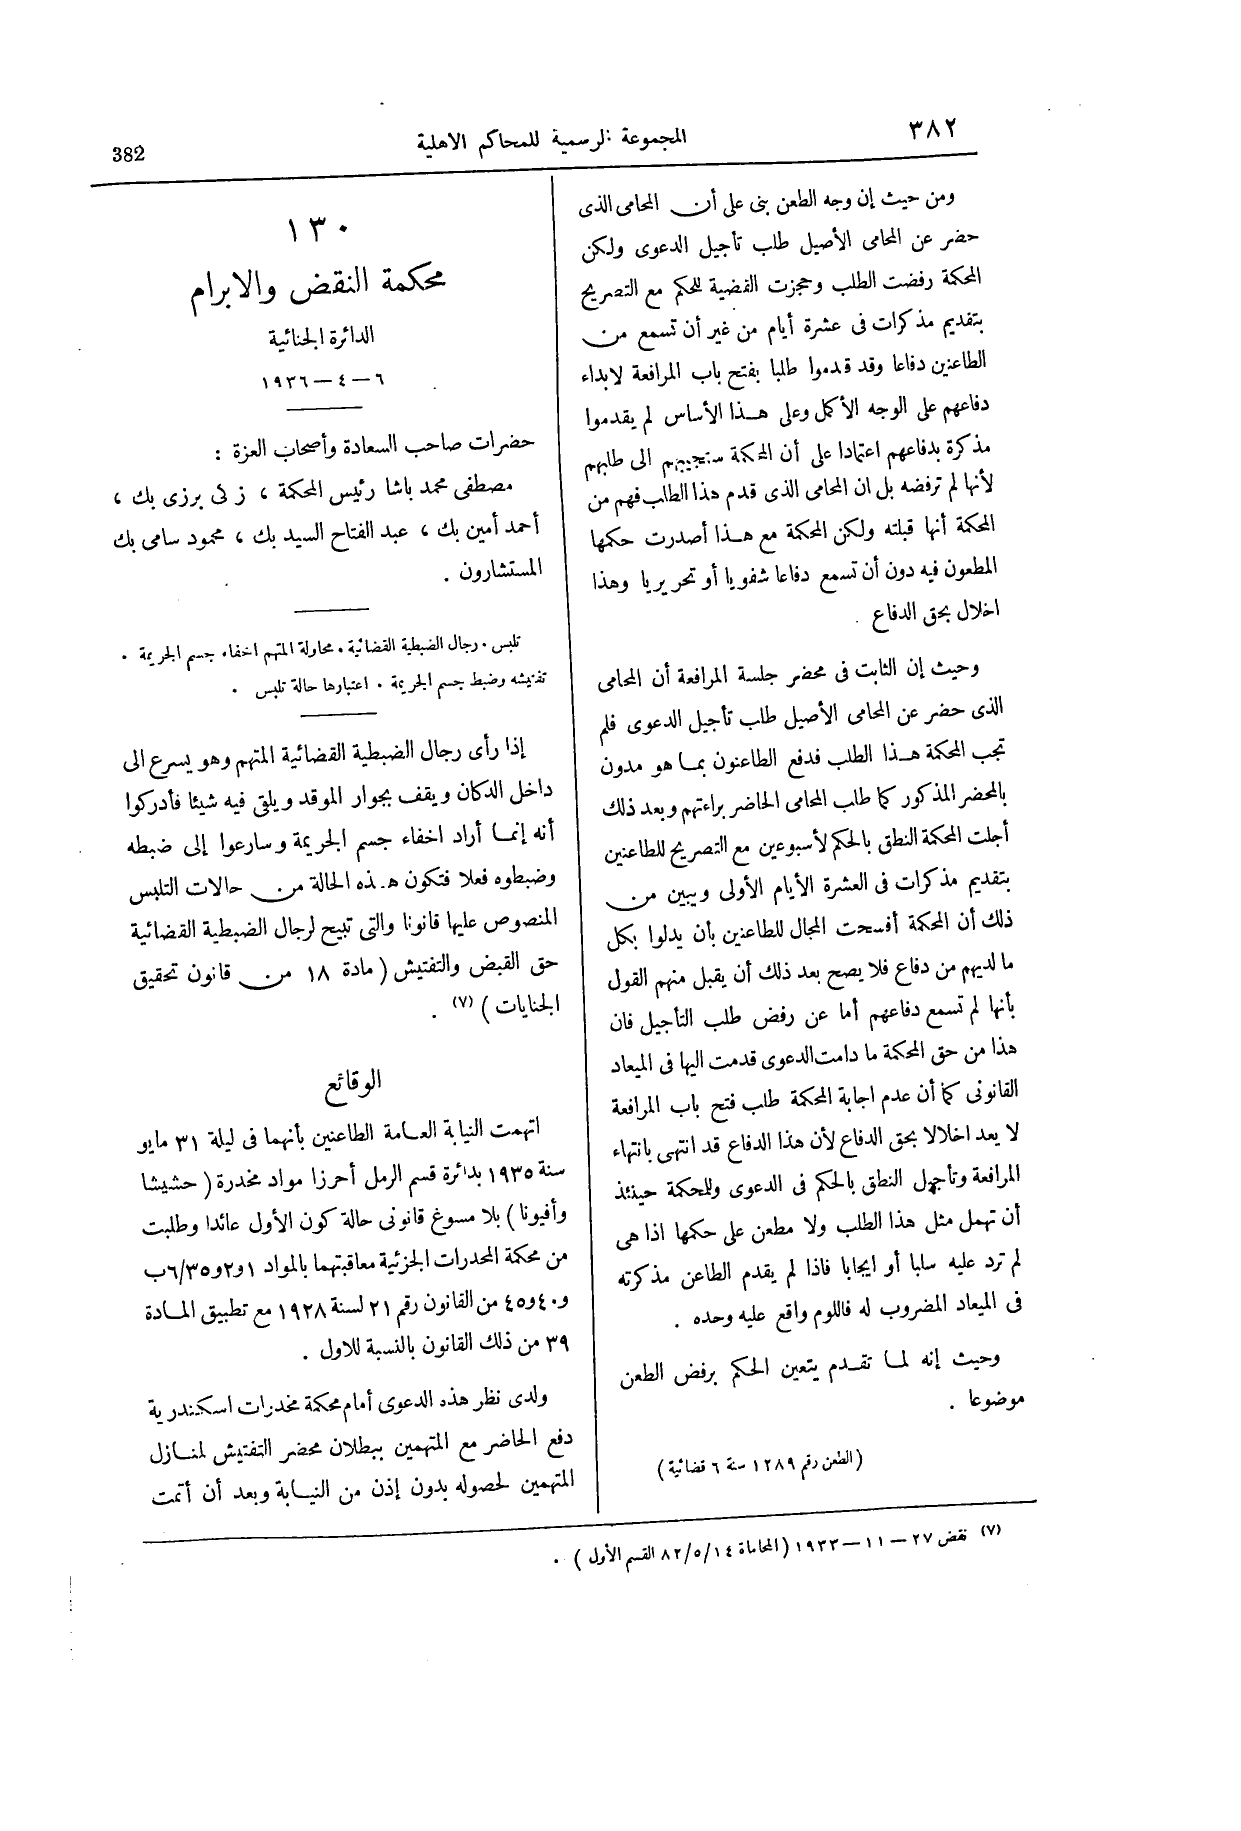 ٣٨٢
المجموعة الرسمية للمحاكم الاهلية
382
ومن حيث إن وجه الطعن بنى على أن المحامى الذى
حضر عن المحامى الأصيل طلب تأجيل الدعوى ولكن
المحكمة رفضت الطلب وحجزت القضية للحكم مع التصريح
بتقديم مذكرات فى عشرة أيام من غير أن تسمع من
الطاعنين دفاعا وقد قدموا طلبا بفتح باب المرافعة لابداء
دفاعهم على الوجه الأكمل وعلى هذا الأساس لم يقدموا
مذكرة بدفاعهم اعتمادا على أن المحكمة ستجيبهم الى طلبهم
لأنها لم ترفضه بل ان المحامى الذى قدم هذا الطلب فهم من
المحكمة أنها قبلته ولكن المحكمة مع هذا أصدرت حكمها
المطعون فيه دون أن تسمع دفاعا شفويا أو تحريريا وهذا
اخلال بحق الدفاع .
وحيث إن الثابت فى محضر جلسة المرافعة أن المحامى
الذى حضر عن المحامى الأصيل طلب تأجيل الدعوى فلم
تجب المحكمة هذا الطلب فدفع الطاعنون بما هو مدون
بالمحضر المذكور كما طلب المحامى الحاضر براءتهم وبعد ذلك
أجلت المحكمة النطق بالحكم لأسبوعين مع التصريح للطاعنين
بتقديم مذكرات فى العشرة الأيام الأولى ويبين من
ذلك أن المحكمة أفسحت المجال للطاعنين بأن يدلوا بكل
ما لديهم من دفاع فلا يصح بعد ذلك أن يقبل منهم القول
بأنها لم تسمع دفاعهم أما عن رفض طلب التأجيل فان
هذا من حق المحكمة ما دامت الدعوى قدمت اليها فى الميعاد
القانونى كما أن عدم اجابة المحكمة طلب فتح باب المرافعة
لا يعد اخلالا بحق الدفاع لأن هذا الدفاع قد انتهى بانتهاء
المرافعة وتأجيل النطق بالحكم فى الدعوى وللمحكمة حينئذ
أن تهمل مثل هذا الطلب ولا مطعن على حكمها اذا هى
لم ترد عليه سلبا أو ايجابا فاذا لم يقدم الطاعن مذكرته
فى الميعاد المضروب له فاللوم واقع عليه وحده .
وحيث إنه لما تقدم يتعين الحكم برفض الطعن
موضوعا .
(الطعن رقم ١٢٨٩ سنة ٦ قضائية)
١٣٠
محكمة النقض والابرام
الدائرة الجنائية
٦ – ٤ – ١٩٣٦
حضرات صاحب السعادة وأصحاب العزة :
مصطفى محمد باشا رئيس المحكمة ، زكى برزى بك ،
أحمد أمين بك ، عبد الفتاح السيد بك ، محمود سامى بك
المستشارون .
تلبس . رجال الضبطية القضائية . محاولة المتهم اخفاء جسم الجريمة .
تفتيشه وضبط جسم الجريمة . اعتبارها حالة تلبس .
إذا رأى رجال الضبطية القضائية المتهم وهو يسرع الى
داخل الدكان ويقف بجوار الموقد ويلقى فيه شيئا فأدركوا
أنه إنما أراد اخفاء جسم الجريمة وسارعوا إلى ضبطه
وضبطوه فعلا فتكون هذه الحالة من حالات التلبس
المنصوص عليها قانونا والتى تبيح لرجال الضبطية القضائية
حق القبض والتفتيش (مادة ١٨ من قانون تحقيق
الجنايات) (٧) .
الوقائع
اتهمت النيابة العامة الطاعنين بأنهما فى ليلة ٣١ مايو
سنة ١٩٣٥ بدائرة قسم الرمل أحرزا مواد مخدرة (حشيشا
وأفيونا) بلا مسوغ قانونى حالة كون الأول عائدا وطلبت
من محكمة المخدرات الجزئية معاقبتهما بالمواد ١و٢و٦/٣٥ب
و٤٠و٤٥ من القانون رقم ٢١ لسنة ١٩٢٨ مع تطبيق المادة
٣٩ من ذلك القانون بالنسبة للاول .
ولدى نظر هذه الدعوى أمام محكمة مخدرات اسكندرية
دفع الحاضر مع المتهمين ببطلان محضر التفتيش لمنازل
المتهمين لحصوله بدون إذن من النيابة وبعد أن أتمت
(٧) نقض ٢٧ – ١١ – ١٩٣٣ (المحاماة ٨٢/٥/١٤ القسم الأول) .